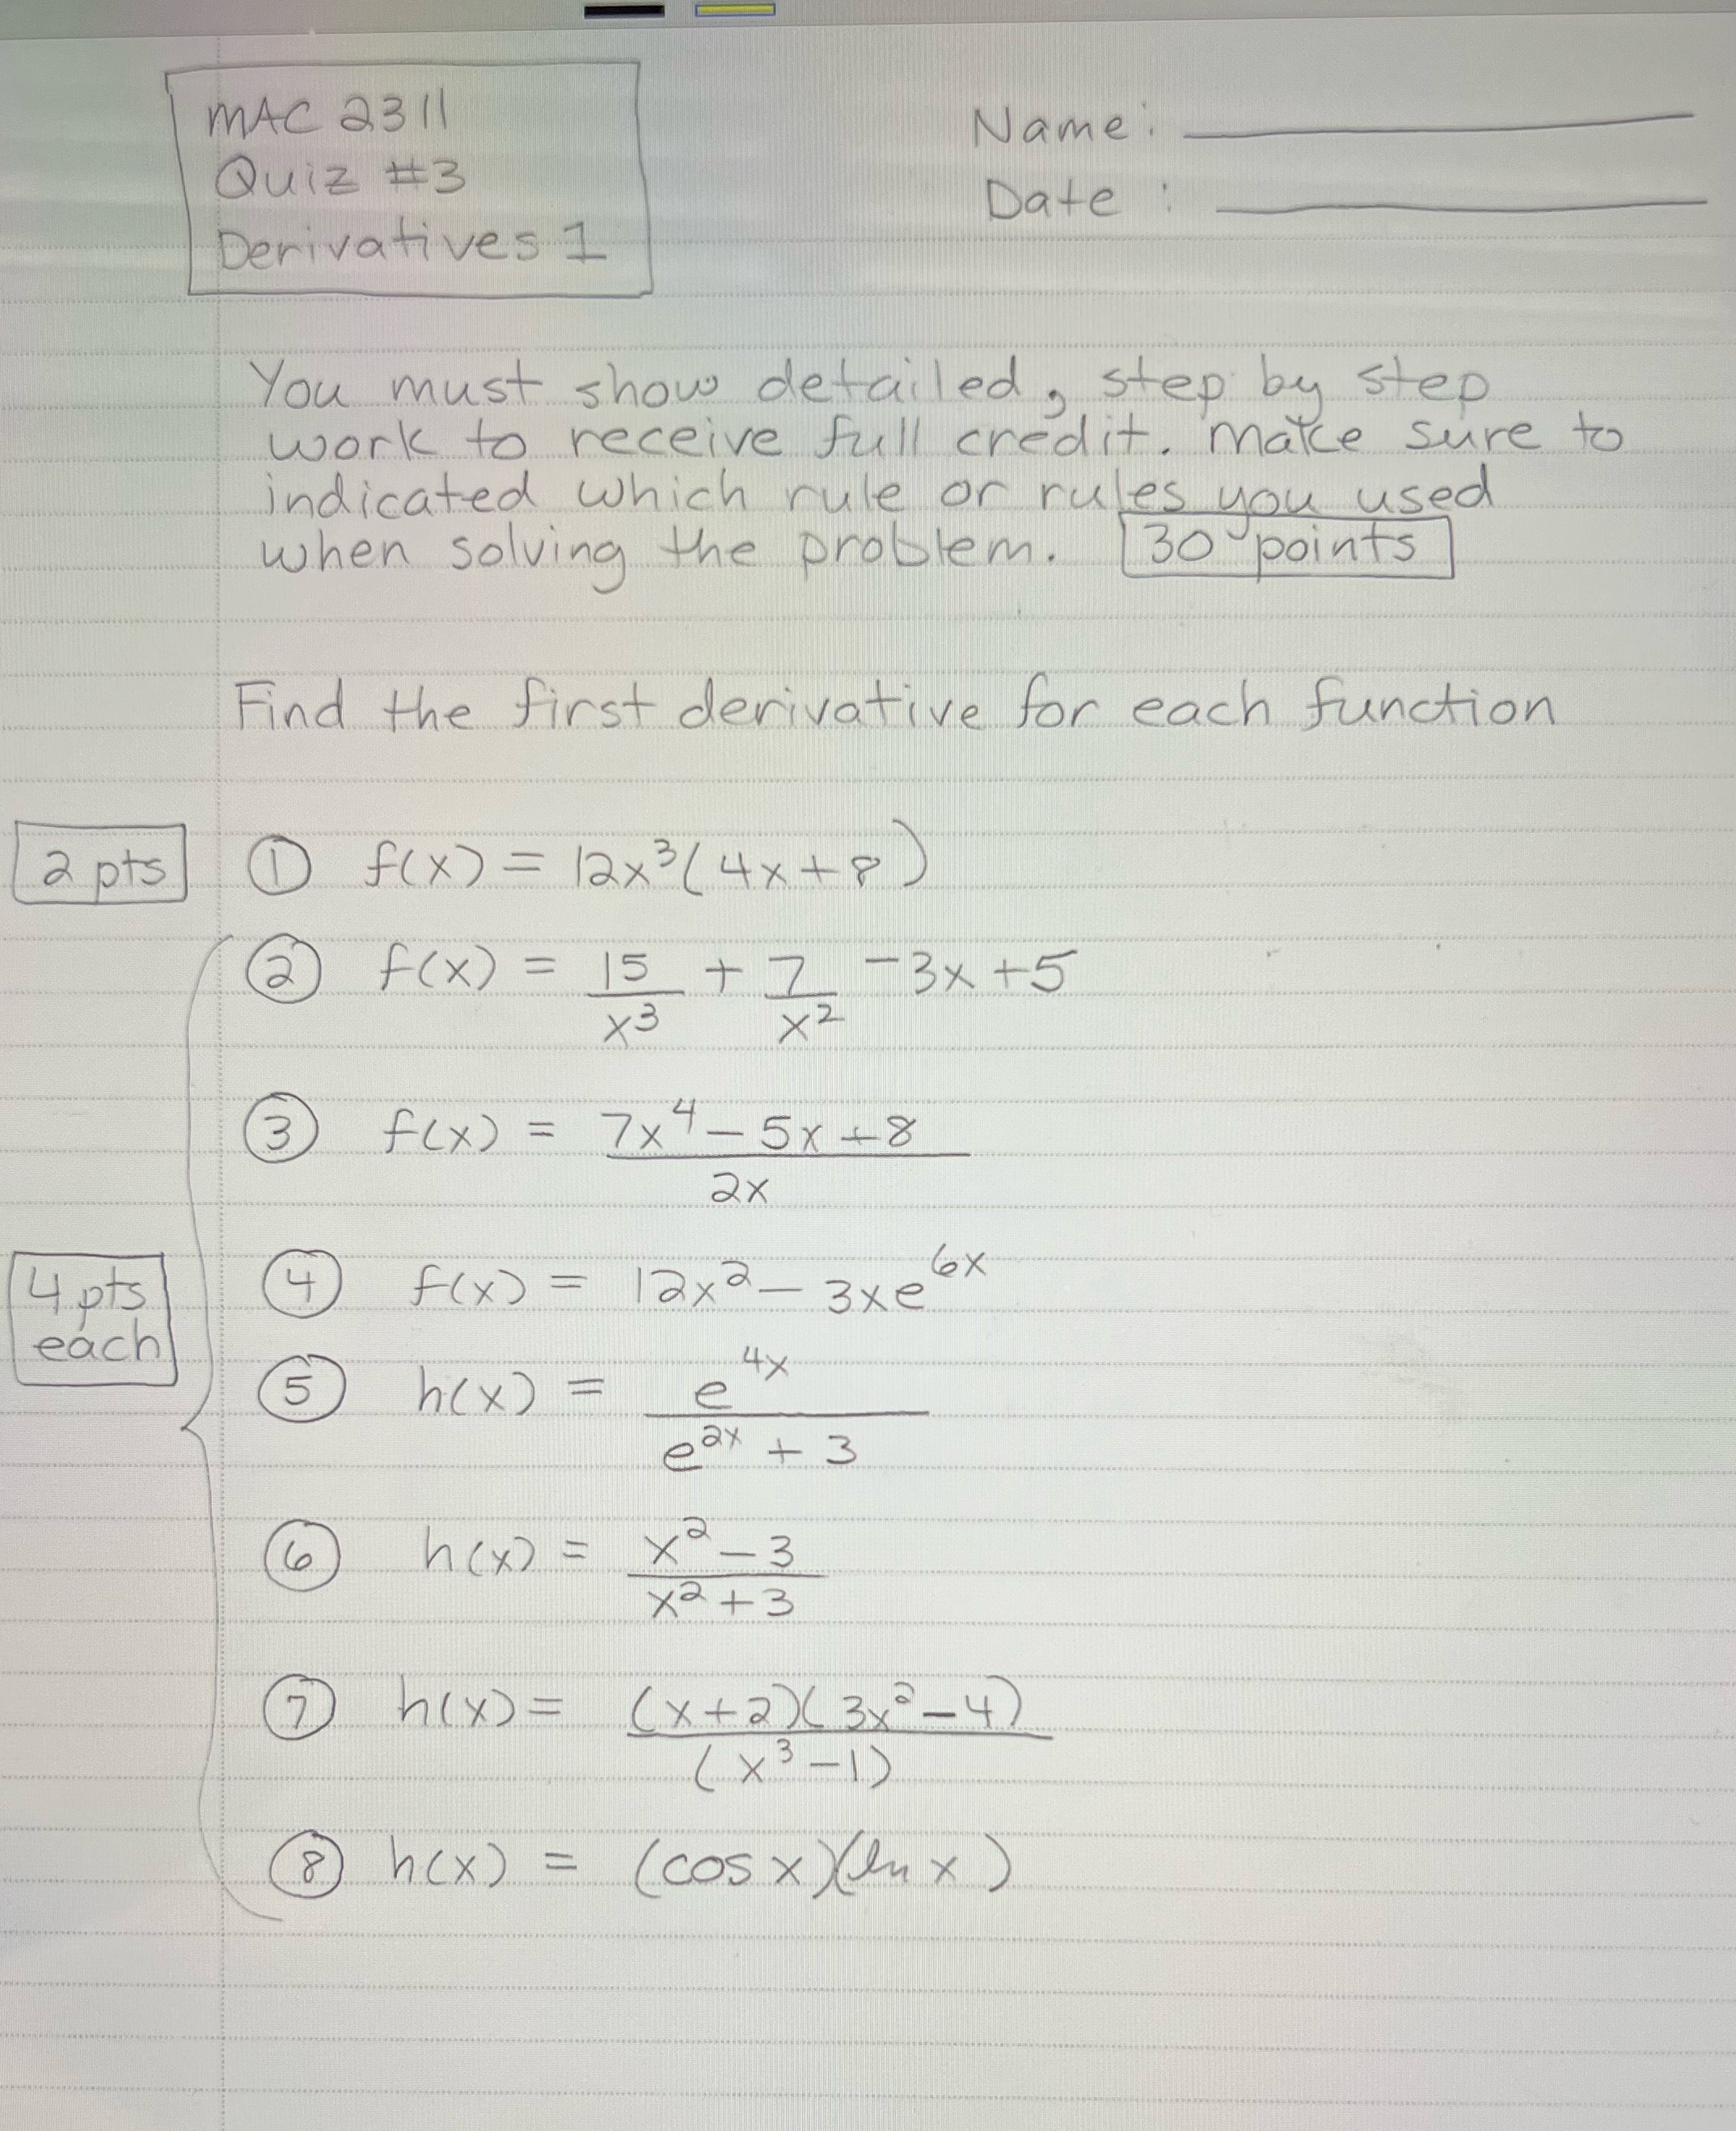 MAC 2311
Quiz #3
Derivatives 1
Name: ____________
Date : ____________
You must show detailed, step by step
work to receive full credit. Make sure to
indicated which rule or rules you used
when solving the problem. 30 points
Find the first derivative for each function
2 pts ① f(x) = 12x³(4x+8)
② f(x) = 15/x³ + 7/x² -3x+5
③ f(x) = (7x⁴ - 5x + 8)/2x
4 pts
each
④ f(x) = 12x² - 3xe^6x
⑤ h(x) = e^4x/(e^2x + 3)
⑥ h(x) = (x² - 3)/(x² + 3)
⑦ h(x) = (x+2)(3x² - 4)/(x³ - 1)
⑧ h(x) = (cos x)(ln x)